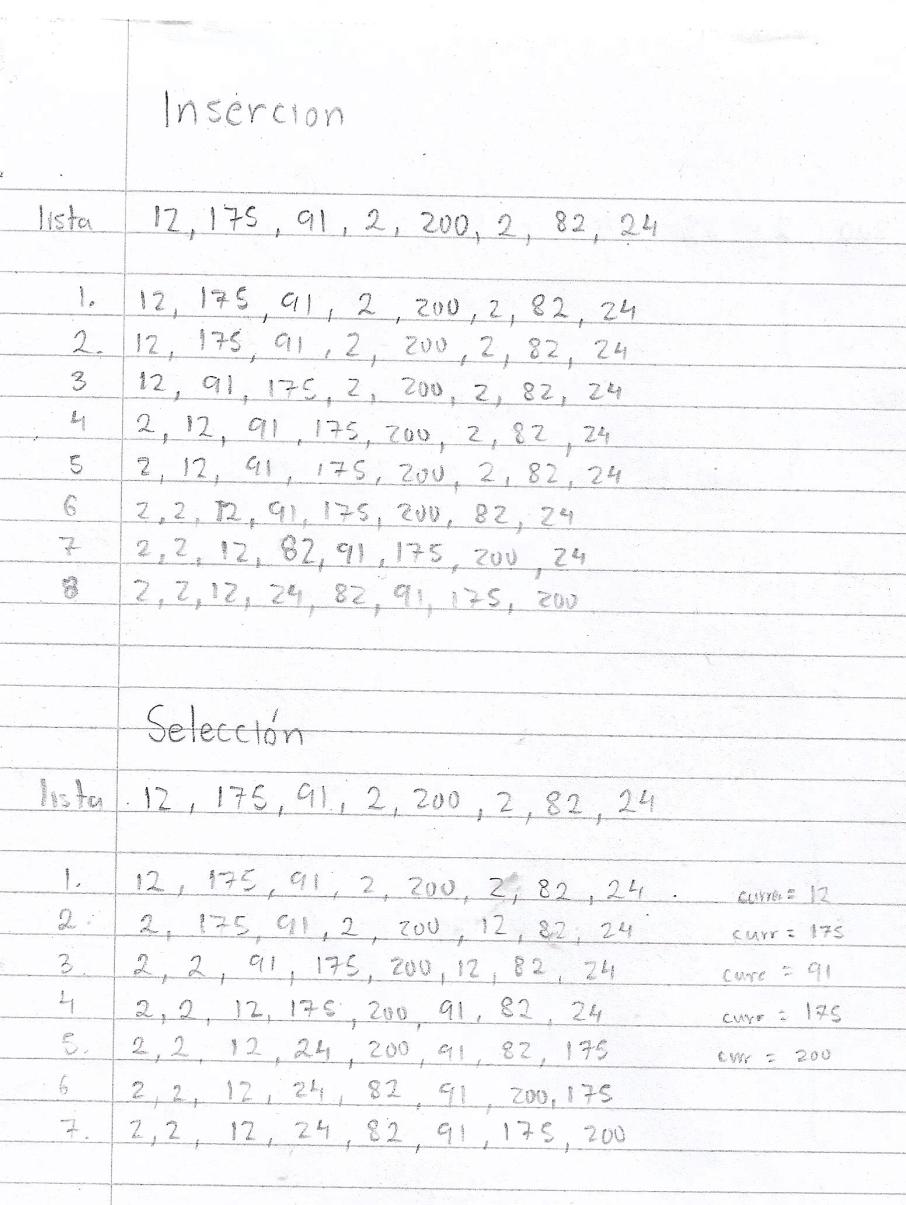 Insercion
lista 12, 175, 91, 2, 200, 2, 82, 24
1. 12, 175, 91, 2, 200, 2, 82, 24
2. 12, 175, 91, 2, 200, 2, 82, 24
3 12, 91, 175, 2, 200, 2, 82, 24
4 2, 12, 91, 175, 200, 2, 82, 24
5 2, 12, 91, 175, 200, 2, 82, 24
6 2, 2, 12, 91, 175, 200, 82, 24
7 2, 2, 12, 82, 91, 175, 200, 24
8 2, 2, 12, 24, 82, 91, 175, 200
Selección
lista 12, 175, 91, 2, 200, 2, 82, 24
1. 12, 175, 91, 2, 200, 2, 82, 24 = 12
2. 2, 175, 91, 2, 200, 12, 82, 24 curr = 175
3. 2, 2, 91, 175, 200, 12, 82, 24 curr = 91
4 2, 2, 12, 175, 200, 91, 82, 24 curr = 175
5. 2, 2, 12, 24, 200, 91, 82, 175 curr = 200
6 2, 2, 12, 24, 82, 91, 200, 175
7. 2, 2, 12, 24, 82, 91, 175, 200